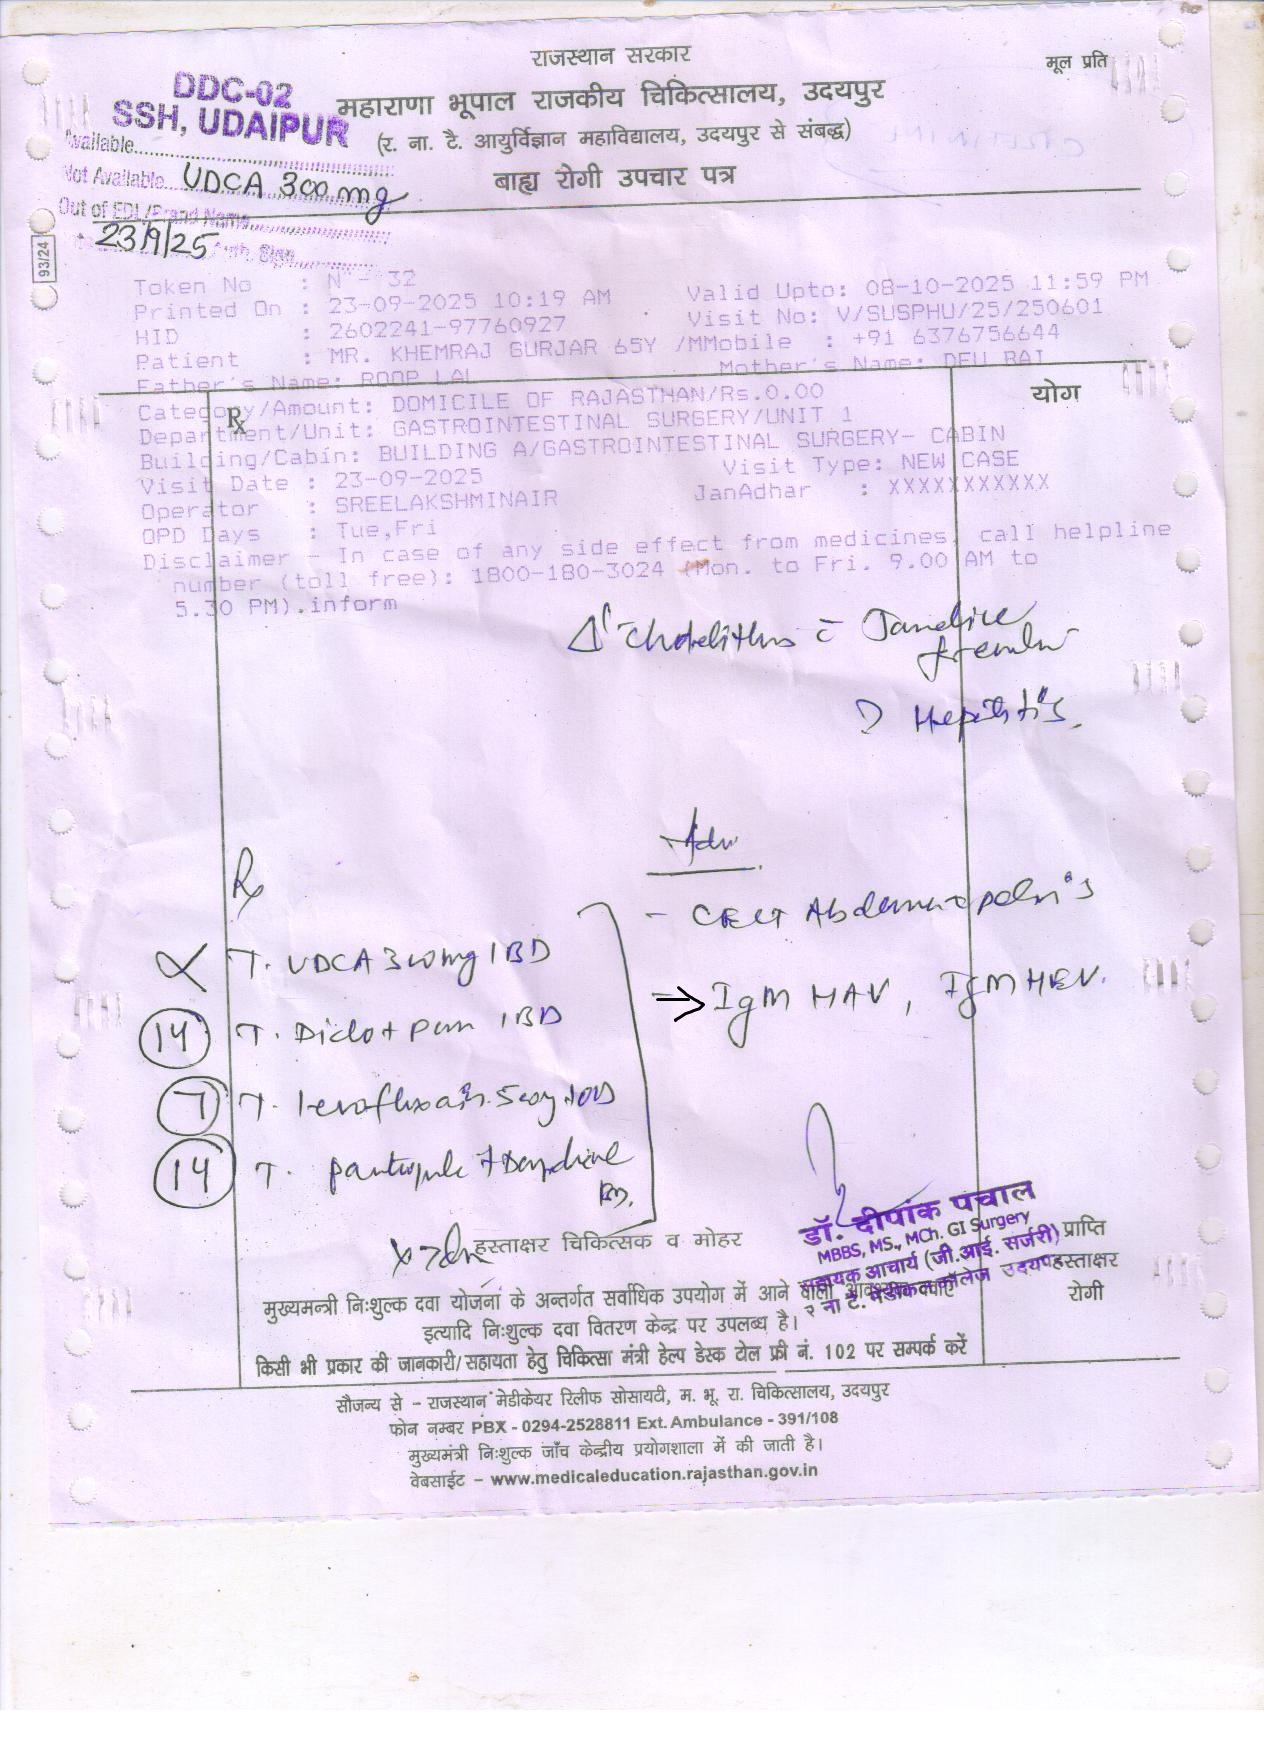 राजस्थान सरकार
मूल प्रति
DDC-02
SSH, UDAIPUR
महाराणा भूपाल राजकीय चिकित्सालय, उदयपुर
(र. ना. टै. आयुर्विज्ञान महाविद्यालय, उदयपुर से संबद्ध)
Available
Not Available UDCA 300 mg
बाह्य रोगी उपचार पत्र
Out of EDL/Brand Name
23/9/25 Sign
93/24
Token No : N - 32
Printed On : 23-09-2025 10:19 AM Valid Upto: 08-10-2025 11:59 PM
HID : 2602241-97760927 Visit No: V/SUSPHU/25/250601
Patient : MR. KHEMRAJ GURJAR 65Y /MMobile : +91 6376756644
Father's Name: ROOP LAL Mother's Name: DEU BAI
योग
Rx
Category/Amount: DOMICILE OF RAJASTHAN/Rs.0.00
Department/Unit: GASTROINTESTINAL SURGERY/UNIT 1
Building/Cabin: BUILDING A/GASTROINTESTINAL SURGERY- CABIN
Visit Date : 23-09-2025 Visit Type: NEW CASE
Operator : SREELAKSHMINAIR JanAdhar : XXXXXXXXXXX
OPD Days : Tue,Fri
Disclaimer - In case of any side effect from medicines, call helpline
number (toll free): 1800-180-3024 (Mon. to Fri. 9.00 AM to
5.30 PM).inform
? Hepatitis
Adv
Rx
- CECT Abdomen pelvis
T. UDCA 300mg 1 BD
→ IgM HAV, IgM HEV.
14 T. Diclo + pcm 1 BD
7 T. levofloxacin 500mg 1 OD
14 T.
हस्ताक्षर चिकित्सक व मोहर
डॉ. दीपांक पंचाल
MBBS, MS., MCh. GI Surgery
सहायक आचार्य (जी.आई. सर्जरी)
प्राप्ति
हस्ताक्षर
रोगी
मुख्यमन्त्री निःशुल्क दवा योजना के अन्तर्गत सर्वाधिक उपयोग में आने वाली
इत्यादि निःशुल्क दवा वितरण केन्द्र पर उपलब्ध है।
किसी भी प्रकार की जानकारी/सहायता हेतु चिकित्सा मंत्री हेल्प डेस्क टोल फ्री नं. 102 पर सम्पर्क करें
सौजन्य से - राजस्थान मेडीकेयर रिलीफ सोसायटी, म. भू. रा. चिकित्सालय, उदयपुर
फोन नम्बर PBX - 0294-2528811 Ext. Ambulance - 391/108
मुख्यमंत्री निःशुल्क जाँच केन्द्रीय प्रयोगशाला में की जाती है।
वेबसाईट - www.medicaleducation.rajasthan.gov.in